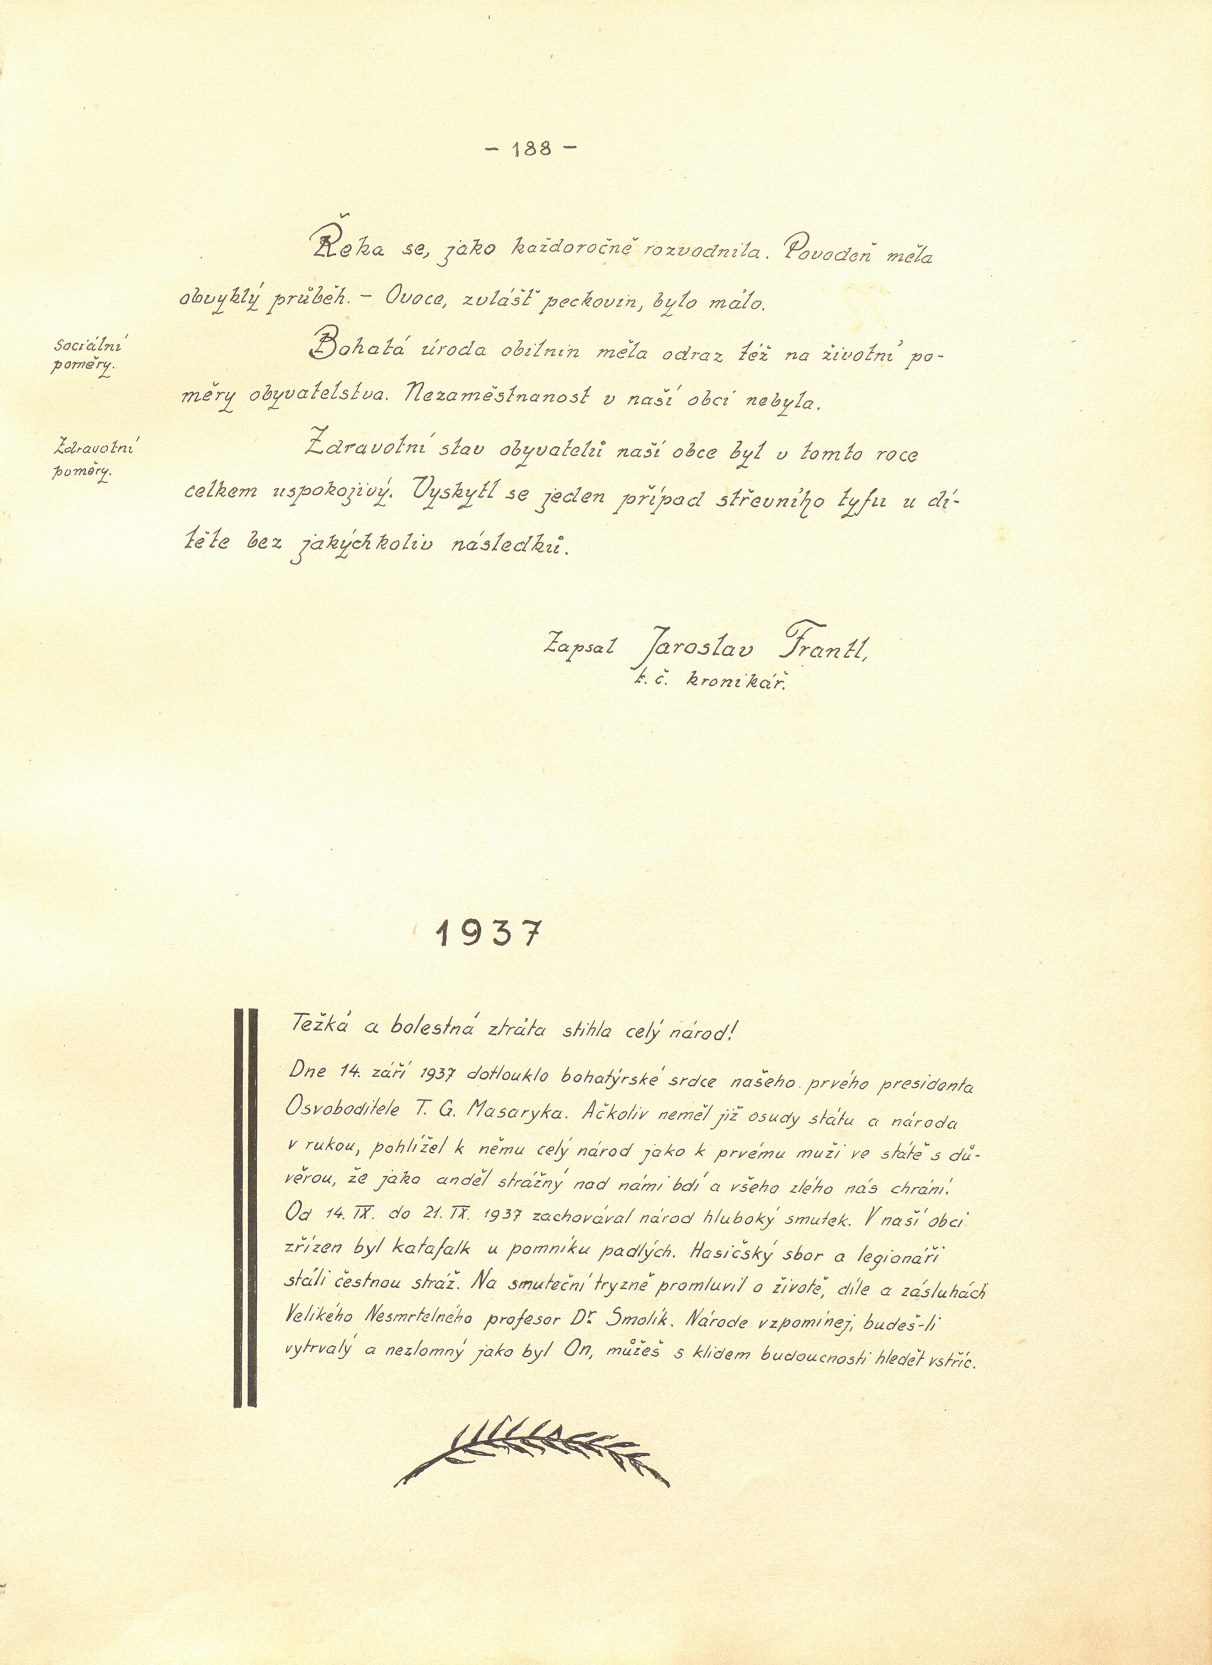 - 188 -
Řeka se, jako každoročně rozvodnila. Povodeň měla
obvyklý průběh. - Ovoce, zvlášť peckovin, bylo málo.
Sociální
poměry.
Bohatá úroda obilnin měla odraz též na životní po-
měry obyvatelstva. Nezaměstnanost v naší obci nebyla.
Zdravotní
poměry.
Zdravotní stav obyvatelů naší obce byl v tomto roce
celkem uspokojivý. Vyskytl se jeden případ střevního tyfu u dí-
těte bez jakýchkoliv následků.
Zapsal Jaroslav Frantl,
t. č. kronikář.
1937
Težká a bolestná ztráta stihla celý národ!
Dne 14. září 1937 dotlouklo bohatýrské srdce našeho prvého presidenta
Osvoboditele T. G. Masaryka. Ačkoliv neměl již osudy státu a národa
v rukou, pohlížel k němu celý národ jako k prvému muži ve státě s dů-
věrou, že jako anděl strážný nad námi bdí a všeho zlého nás chrání.
Od 14. IX. do 21. IX. 1937 zachovával národ hluboký smutek. V naší obci
zřízen byl katafalk u pomníku padlých. Hasičský sbor a legionáři
stáli čestnou stráž. Na smuteční tryzně promluvil o životě, díle a zásluhách
Velikého Nesmrtelného profesor Dr. Smolík. Národe vzpomínej, budeš-li
vytrvalý a nezlomný jako byl On, můžeš s klidem budoucnosti hledět vstříc.